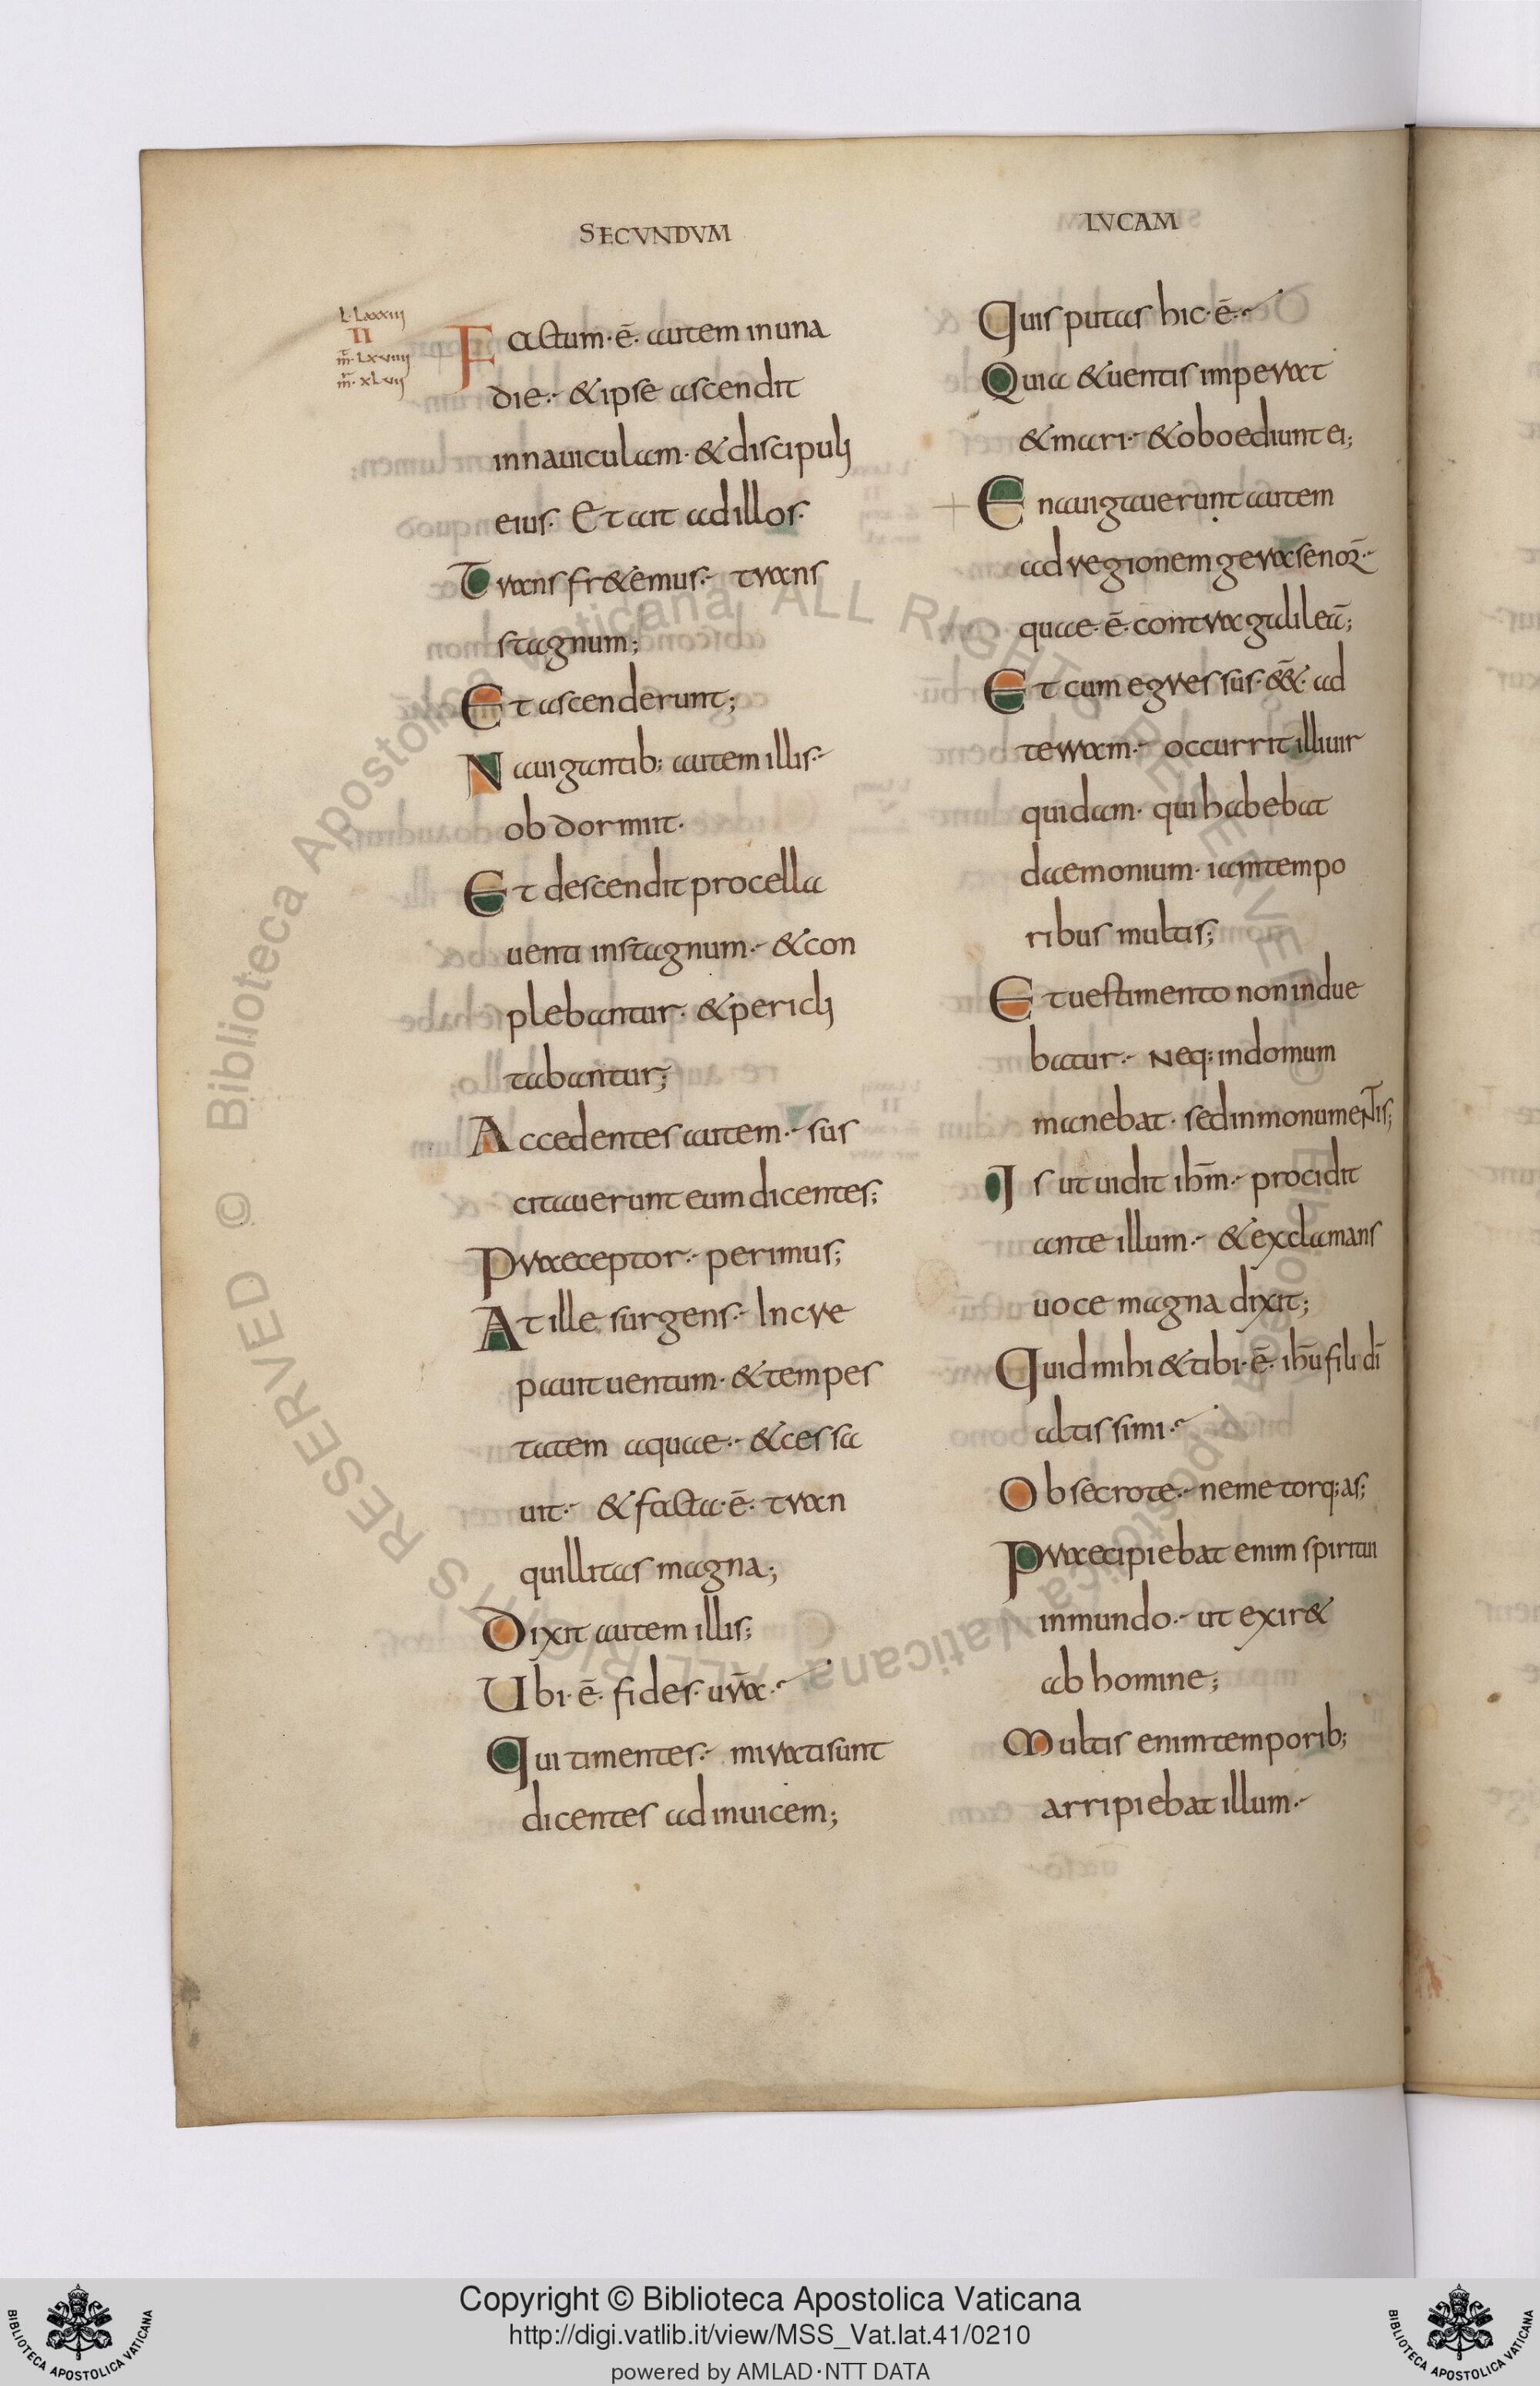 SECVNDVM
L·Lxxxiij
II
m̄·Lxviiij
m̄·xLvij
Factum·ē·autem inuna
die·&ipse ascendit
innauiculam·&discipulj
eius· Et ait adillos·
Transfr&emus· trans
stagnum;
Et ascenderunt;
Nauigantib; autem illis·
obdormiit·
Et descendit procella
uenti instagnum·&con
plebantur·&periclj
tabantur;
Accedentes autem· sus
citauerunt eum dicentes;
Praeceptor· perimus;
At ille surgens· Incre
pauit uentum·&tempes
tatem aquae·&cessa
uit· &facta·ē· tran
quillitas magna;
Dixit autem illis;
Ubi·ē· fides· ur̄a·
Qui timentes· mirati sunt
dicentes adinuicem;
LUCAM
Quis putas hic·ē·
Quia &uentis imperat
&mari·&oboediunt ei;
Enauigauerunt autem
adregionem gerasenoꝝ·
quae·ē·contra galileā;
Et cum egressus·ēē&·ad
terram· occurrit illi uir
quidam· qui habebat
daemonium·iamtempo
ribus multis;
Et uestimento non indue
batur· Neq; indomum
manebat· sedinmonumeNTis;
Is ut uidit ih̄m· procidit
ante illum·&exclamans
uoce magna dixit;
Quid mihi &tibi·ē· ih̄u fili dī
altissimi·
Obsecrote· neme torq;as;
Praecipiebat enim spiritui
inmundo· ut exir&
ab homine;
Multis enimtemporib;
arripiebat illum·
© Biblioteca Apostolica Vaticana ALL RIGHTS RESERVED
Copyright © Biblioteca Apostolica Vaticana
http://digi.vatlib.it/view/MSS_Vat.lat.41/0210
powered by AMLAD·NTT DATA
BIBLIOTECA APOSTOLICA VATICANA
BIBLIOTECA APOSTOLICA VATICANA